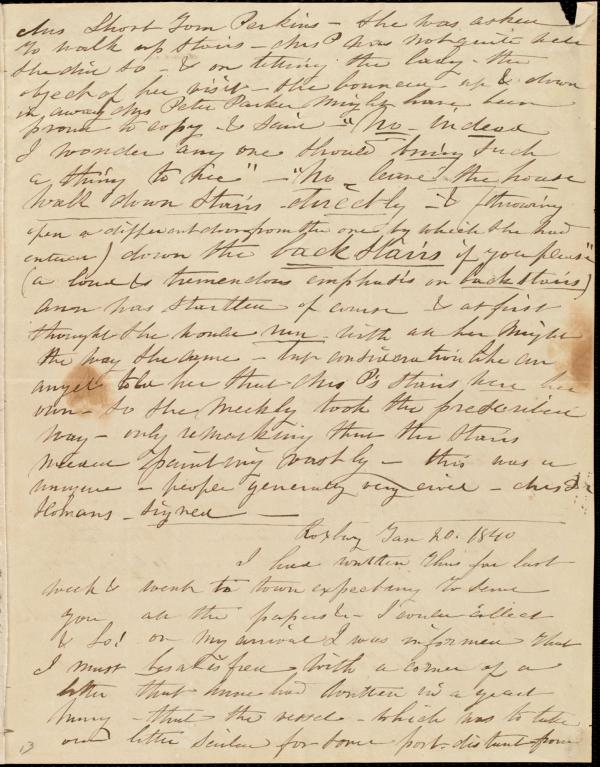 Mrs Short Tom Perkins - She was asked
to walk up stairs - Mrs P was not quite well
She did so - & on telling the lady - the
object of her visit - She bounced up & down
in a way Mrs Peter Parker might have been
proud to copy & said "No - Indeed
I wonder any one should bring such
a thing to me" - "No - leave the house
walk down stairs - directly - & (throwing
open a different door from the one by which she had
entered) down the back stairs if you please"
(a loud & tremendous emphasis on back stairs)
Ann was startled of course & at first
thought she would run with all her might
the way she came - but consideration like an
angel told her that Mrs P's stairs were her
own - so she meekly took the prescribed
way - only remarking that the stairs
needed painting vastly - this was a
- people generally very civil - Mrs
signed -
Roxbury Jan 20. 1840
I had written thus far last
week & went to town expecting to send
you all the papers &c I could collect
& Lo! on my arrival I was informed that
I must be satisfied with a corner of a
letter that Anne had written in a great
hurry - that the vessel - which was to take
our letter sailed for some port distant from
13